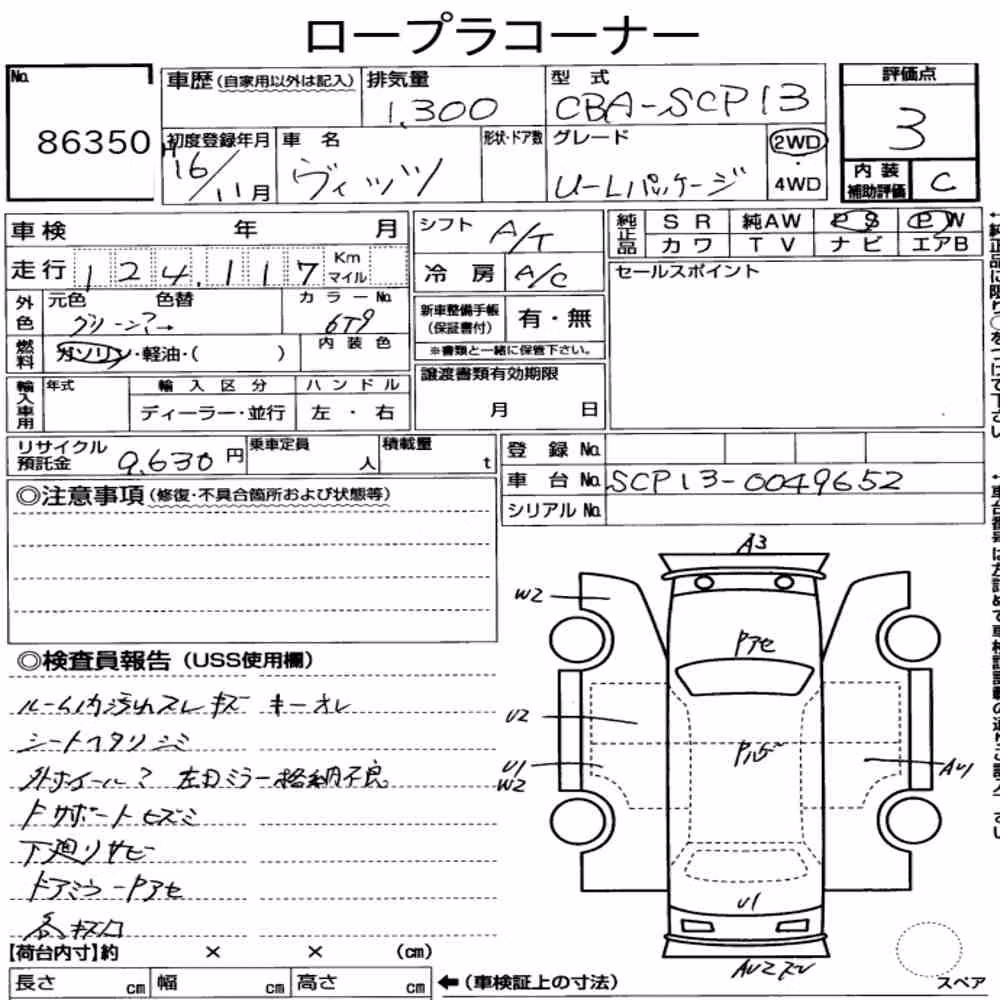 ロープラコーナー
No. 86350
車歴(自家用以外は記入) 排気量 1,300 型式 CBA-SCP13 評価点 3
初度登録年月 H16/11月 車名 ヴィッツ 形状・ドア数 グレード U-Lパッケージ 2WD・4WD 内装補助評価 C
車検 年 月 シフト A/T 純正品 SR 純AW PS PW
走行 124,117 Km マイル 冷房 A/C カワ TV ナビ エアB
外色 元色 グリーン?→ 色替 カラーNo. 6T9
新車整備手帳(保証書付) 有・無
※書類と一緒に保管下さい。
セールスポイント
燃料 ガソリン・軽油・( ) 内装色
譲渡書類有効期限 月 日
輸入車用 年式 輸入区分 ディーラー・並行 ハンドル 左・右
リサイクル預託金 9,630円 乗車定員 人 積載量 t
登録No.
車台No. SCP13-0049652
シリアルNo.
◎注意事項(修復・不具合箇所および状態等)
◎検査員報告(USS使用欄)
ルーム内汚れスレキズ キーオレ
シートヘタリシミ
外ホイール? 左ドミラー格納不良
Fサポートヒズミ
下廻りサビ
ドアミラーPアセ
各キズ凹
【荷台内寸】約 × × (cm)
長さ cm 幅 cm 高さ cm ←(車検証上の寸法)
A3
W2
Pアセ
U2
U1
W2
AU1
U1
スペア